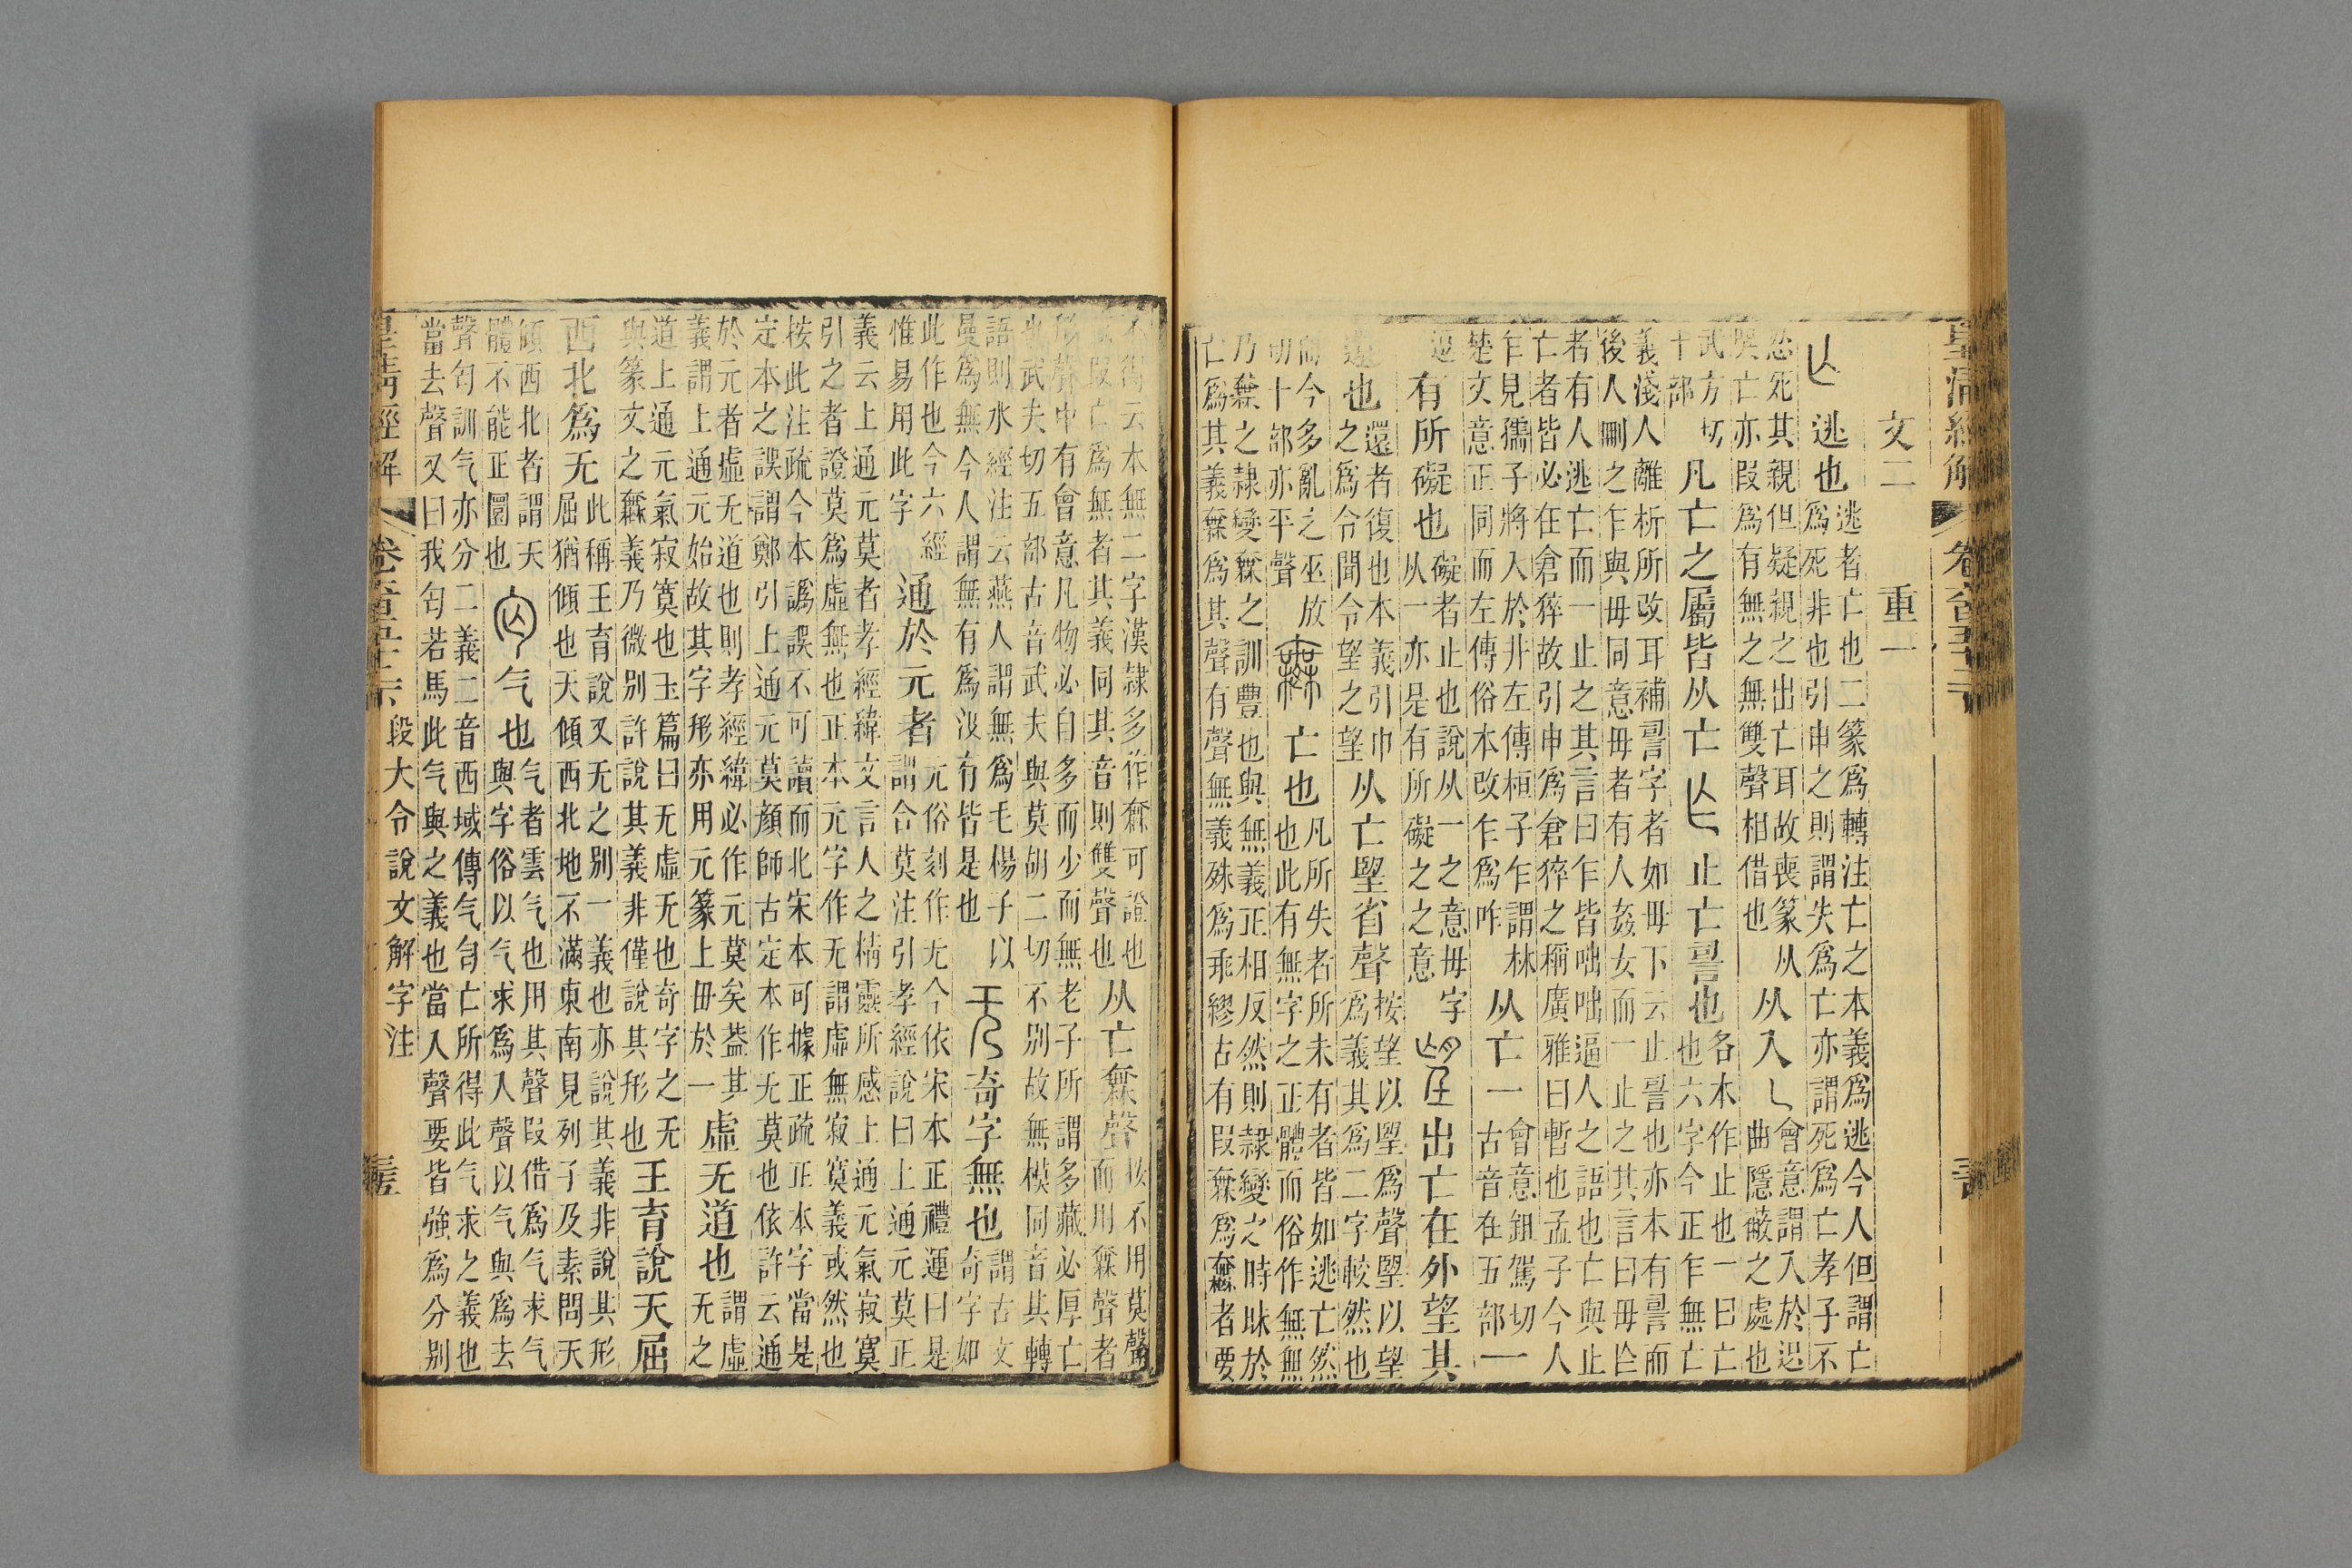 皇清經解
文二　重一
亾　逃也逃者亡也二篆爲轉注亡之本義爲逃今人但謂亡爲死非也引申之則謂失爲亡亦謂死爲亡孝子不
忍死其親但疑親之出亡耳故喪篆从哭亡亦叚爲有無之無雙聲相借也从入乚會意謂入於迟曲隱蔽之處也
武方切十部凡亡之屬皆从亡　乍　止亡䛐也各本作止也一曰亡也六字今正乍無亡
義淺人離析所改耳補䛐字者如毋下云止䛐也亦本有䛐而後人刪之乍與毋同意毋者有人姦女而一止之其言曰毋乍
者有人逃亡而一止之其言曰乍皆咄咄逼人之語也亡與止亡者皆必在倉猝故引申爲倉猝之稱廣雅曰暫也孟子今人
乍見孺子將入於井左傳桓子乍謂林楚文意正同而左傳俗本改乍爲咋从亡一會意鉏駕切古音在五部一
逗有所礙也礙者止也說从一之意毋字从一亦是有所礙之之意　望　出亡在外望其
還也還者復也本義引巾之爲令聞令望之望从亡朢省聲按望以朢爲聲朢以望爲義其爲二字較然也
而今多亂之巫放切十部亦平聲　𣠮　亡也凡所失者所未有者皆如逃亡然也此有無字之正體而俗作無無
乃𣞤之隸變𣞤之訓豐也與無義正相反然則隸變之時昧於亡爲其義𣞤爲其聲有聲無義殊爲乖繆古有叚𣞤爲𣠮者要
不得云本無二字漢隸多作𣠮可證也或叚亡爲無者其義同其音則雙聲也从亡𣞤聲按不用莫聲而用𣞤聲者
形聲中有會意凡物必自多而少而無老子所謂多藏必厚亡也武夫切五部古音武夫與莫胡二切不别故無模同音其轉
語則水經注云燕人謂無爲毛楊子以曼爲無今人謂無有爲沒有皆是也　无　奇字無也謂古文奇字如
此作也今六經惟易用此字通於元者元俗刻作无今依宋本正禮運曰是謂合莫注引孝經說曰上通元莫正
義云上通元莫者孝經緯文言人之精靈所感上通元氣寂寞引之者證莫爲虛無也正本元字作无謂虛無寂寞義或然也
按此注疏今本譌誤不可讀而北宋本可據正疏正本字當是定本之誤謂鄭引上通元莫顔師古定本作无莫也依許云通
於元者虛无道也則孝經緯必作元莫矣葢其義謂上通元始故其字形亦用元篆上毌於一虛无道也謂虛无之
道上通元氣寂寞也玉篇曰无虛无也奇字之无與篆文之𣠮義乃微别許說其義非僅說其形也王育說天屈
西北爲无此稱王育說又无之别一義也亦說其義非說其形屈猶傾也天傾西北地不滿東南見列子及素問天
傾西北者謂天體不能正圜也　匃　气也气者雲气也用其聲叚借爲气求气與字俗以气求爲入聲以气與爲去
聲匃訓气亦分二義二音西域傳气匃亡所得此气求之義也當去聲又曰我匃若馬此气與之義也當入聲要皆強爲分别
皇清經解　段大令說文解字注